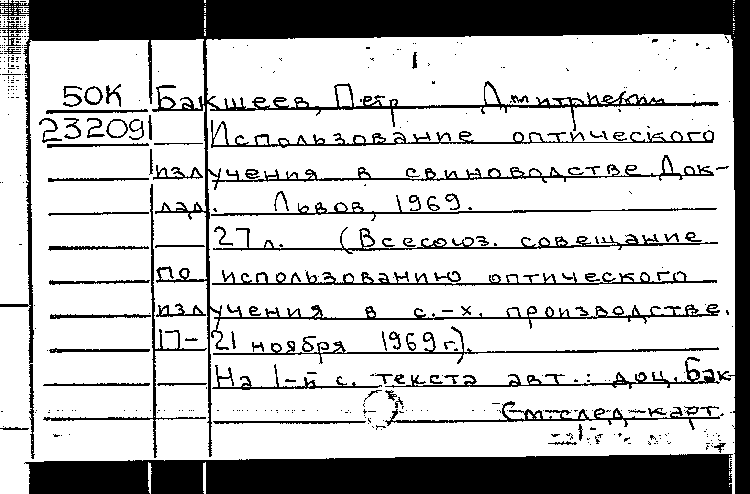 1
50К Бакшеев, Петр Дмитриевич
23209 Использование оптического
излучения в свиноводстве. Док-
лад. Львов, 1969.
27 л. (Всесоюз. совещание
по использованию оптического
излучения в с.-х. производстве.
17-21 ноября 1969 г.).
На 1-й с. текста авт.: доц. Бак
См. след. карт.